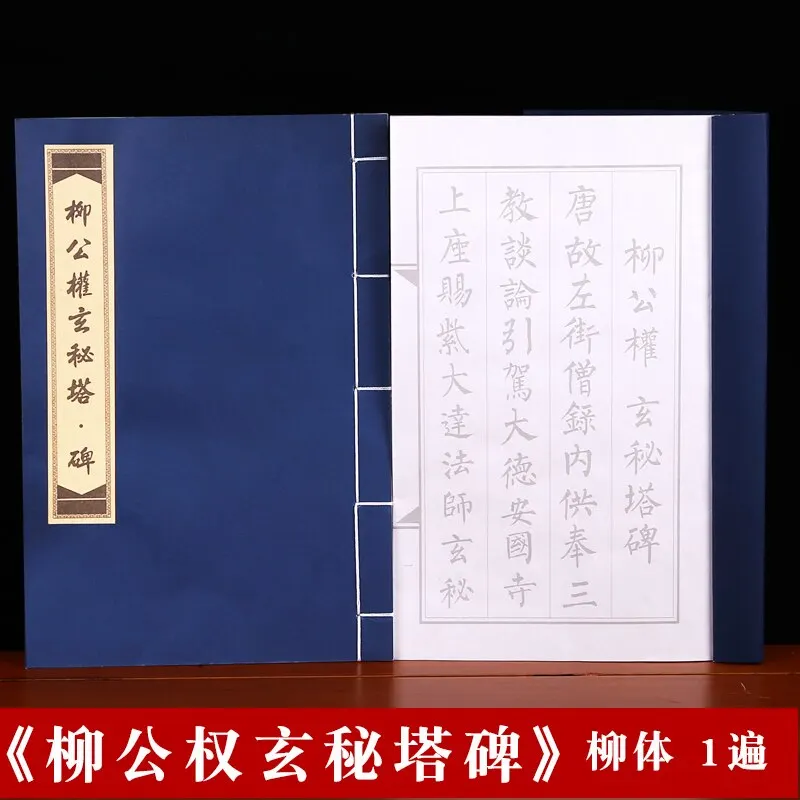 柳公權玄秘塔·碑
柳公權 玄秘塔碑
唐故左街僧録内供奉三
教談論引駕大德安國寺
上座賜紫大達法師玄秘
《柳公权玄秘塔碑》 柳体 1遍